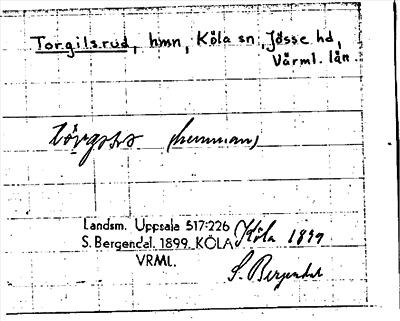 Torgilsrud, hmn, Köla sn, Jösse hd,
Värml. län
(hemman)
Landsm. Uppsala 517:226
S. Bergendal. 1899. KÖLA
VRML.
Köla 1899
S. Bergendal